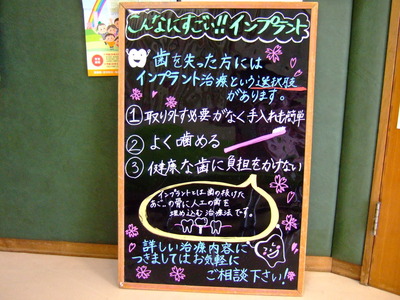 こんなにすごい!!インプラント
歯を失った方には
インプラント治療という選択肢
があります。
①取り外す必要がなく手入れも簡単
②よく噛める
③健康な歯に負担をかけない
インプラントとは歯の抜けた
あごの骨に人工の歯を
埋め込む治療法です。
詳しい治療内容に
つきましてはお気軽に
ご相談下さい!